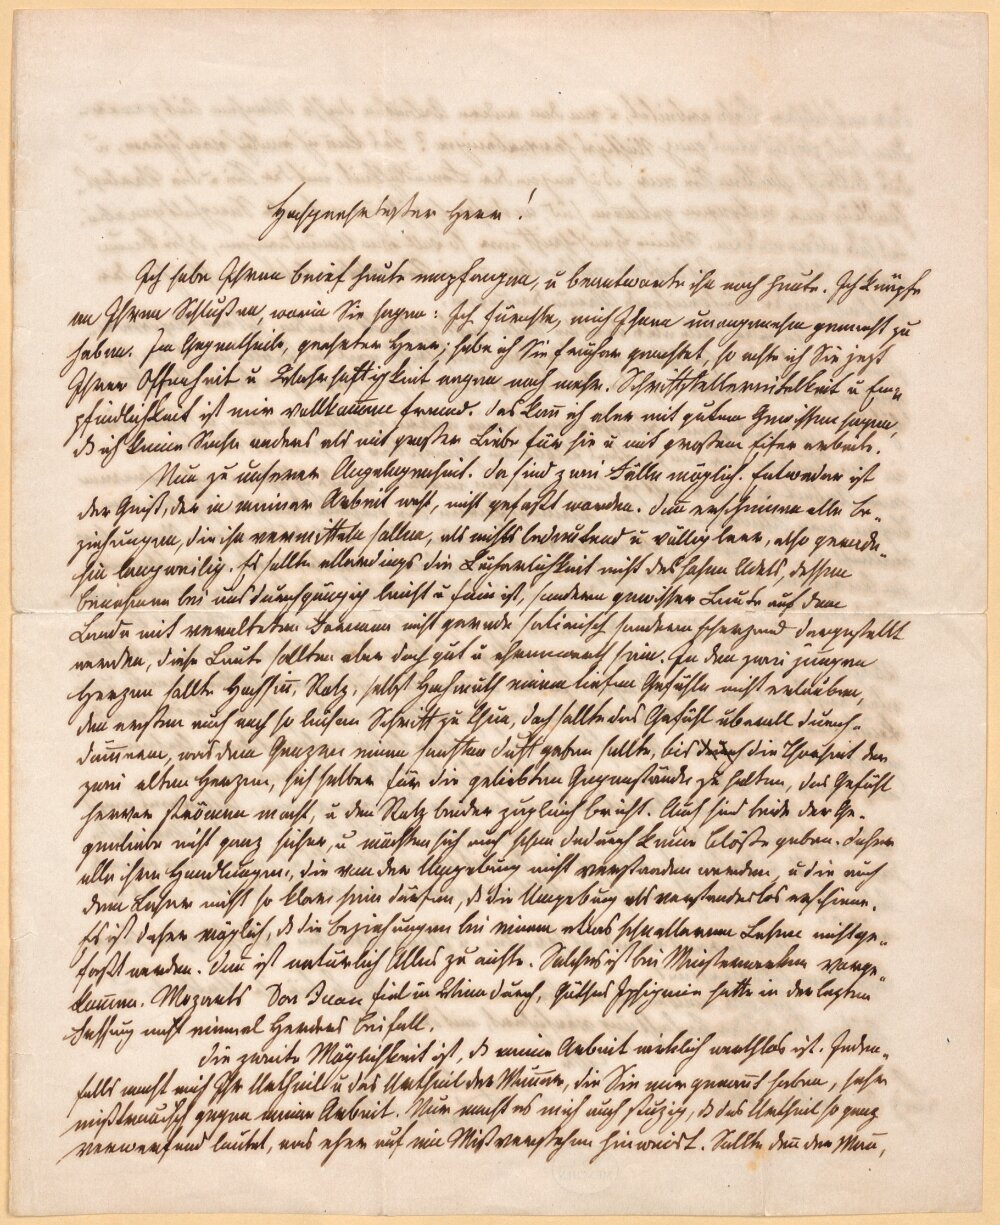 Hochgeehrtester Herr!
Ich habe Ihren Brief heute empfangen, u beantworte ihn noch heute. Ich knüpfe
an Ihren Schluß an, worin Sie sagen: Ich fürchte, mich Ihnen unangenehm gemacht zu
haben. Im Gegentheile, geehrter Herr; habe ich Sie früher geachtet, so achte ich Sie jezt
Ihrer Offenheit u Wahrhaftigkeit wegen noch mehr. Schriftstellereitelkeit u Em-
pfindlichkeit ist mir vollkommen fremd. Das kann ich aber mit gutem Gewissen sagen,
ds ich keine Sache anders als mit großer Liebe für sie u mit großem Eifer arbeite.
Nun zu unserer Angelegenheit. Da sind zwei Fälle möglich. Entweder ist
der Geist, der in meiner Arbeit weht, nicht gefaßt worden. Dann erscheinen alle Be-
ziehungen, die ihn vermitteln sollen, als nichts bedeutend u völlig leer, also gerade-
hin langweilig. Es sollte allerdings die Lächerlichkeit nicht des hohen Adels, dessen
Benehmen bei uns durchgängig leicht u fein ist, sondern gewisser Leute auf dem
Lande mit veralteten Formen nicht gerade satirisch sondern scherzend dargestellt
werden, diese Leute sollten aber doch gut u ehrenwerth sein. In den zwei jungen
Herzen sollte Hochsinn, Stolz, selbst Hochmuth einem tiefen Gefühle nicht erlauben,
den ersten auch noch so leisen Schritt zu thun, doch sollte das Gefühl überall durch-
dämmern, was dem Ganzen einen sanften Duft geben sollte, bis durch die Thorheit der
zwei alten Herzen, sich selber für die geliebten Gegenstände zu halten, das Gefühl
hervor strömen macht, u den Stolz beider zugleich bricht. Auch sind beide der Ge-
genliebe nicht ganz sicher, u möchten sich auch schon dadurch keine Blöße geben. Daher
alle ihre Handlungen, die von der Umgebung nicht verstanden werden, u die auch
dem Leser nicht so klar sein dürfen, ds die Umgebung als verstandeslos erschiene.
Es ist daher möglich, ds die Beziehungen bei einem etwas schnelleren Lesen nicht ge-
faßt werden. Dann ist natürlich Alles zu nichte. Solches ist bei Meisterwerken vorge-
kommen. Mozarts Don Juan fiel in Wien durch, Göthes Iphigenie hatte in der lezten
Fassung nicht einmal Herders Beifall.
Die zweite Möglichkeit ist, ds meine Arbeit wirklich werthlos ist. Jeden-
falls macht mich Ihr Urtheil u das Urtheil der Männer, die Sie mir genannt haben, sehr
mißtrauisch gegen meine Arbeit. Nur macht es mich auch stuzig, ds das Urtheil so ganz
verwerfend lautet, was eher auf ein Mißverstehen hinweist. Sollte denn der Mann,